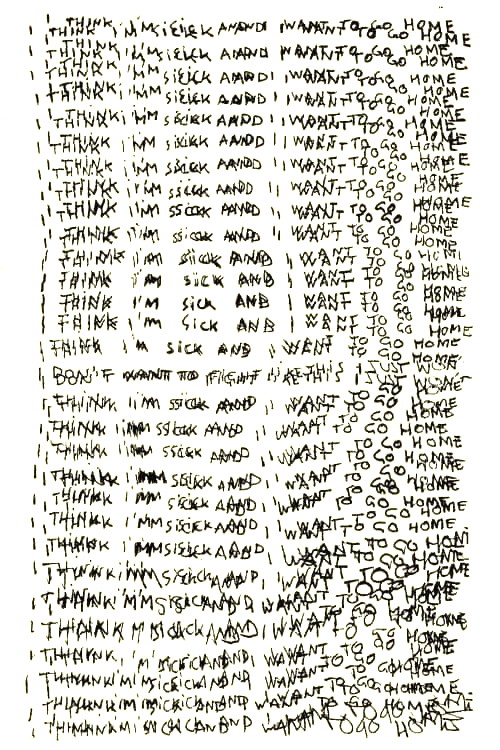 I THINK I'M SICK AND I WANT TO GO HOME
I THINK I'M SICK AND I WANT TO GO HOME
I THINK I'M SICK AND I WANT TO GO HOME
I THINK I'M SICK AND I WANT TO GO HOME
I THINK I'M SICK AND I WANT TO GO HOME
I THINK I'M SICK AND I WANT TO GO HOME
I THINK I'M SICK AND I WANT TO GO HOME
I THINK I'M SICK AND I WANT TO GO HOME
I THINK I'M SICK AND I WANT TO GO HOME
I THINK I'M SICK AND I WANT TO GO HOME
I THINK I'M SICK AND I WANT TO GO HOME
I THINK I'M SICK AND I WANT TO GO HOME
I THINK I'M SICK AND I WANT TO GO HOME
I THINK I'M SICK AND I WANT TO GO HOME
I THINK I'M SICK AND I WENT TO GO HOME
I DON'T WANT TO FIGHT LIKE THIS I JUST WON'T
I THINK I'M SICK AND I WANT TO GO HOME
I THINK I'M SICK AND I WANT TO GO HOME
I THINK I'M SICK AND I WANT TO GO HOME
I THINK I'M SICK AND I WANT TO GO HOME
I THINK I'M SICK AND I WANT TO GO HOME
I THINK I'M SICK AND I WANT TO GO HOME
I THINK I'M SICK AND I WANT TO GO HOME
I THINK I'M SICK AND I WANT TO GO HOME
I THINK I'M SICK AND I WANT TO GO HOME
I THINK I'M SICK AND I WANT TO GO HOME
I THINK I'M SICK AND I WANT TO GO HOME
I THINK I'M SICK AND I WANT TO GO HOME
I THINK I'M SICK AND I WANT TO GO HOME
I THINK I'M SICK AND I WANT TO GO HOME